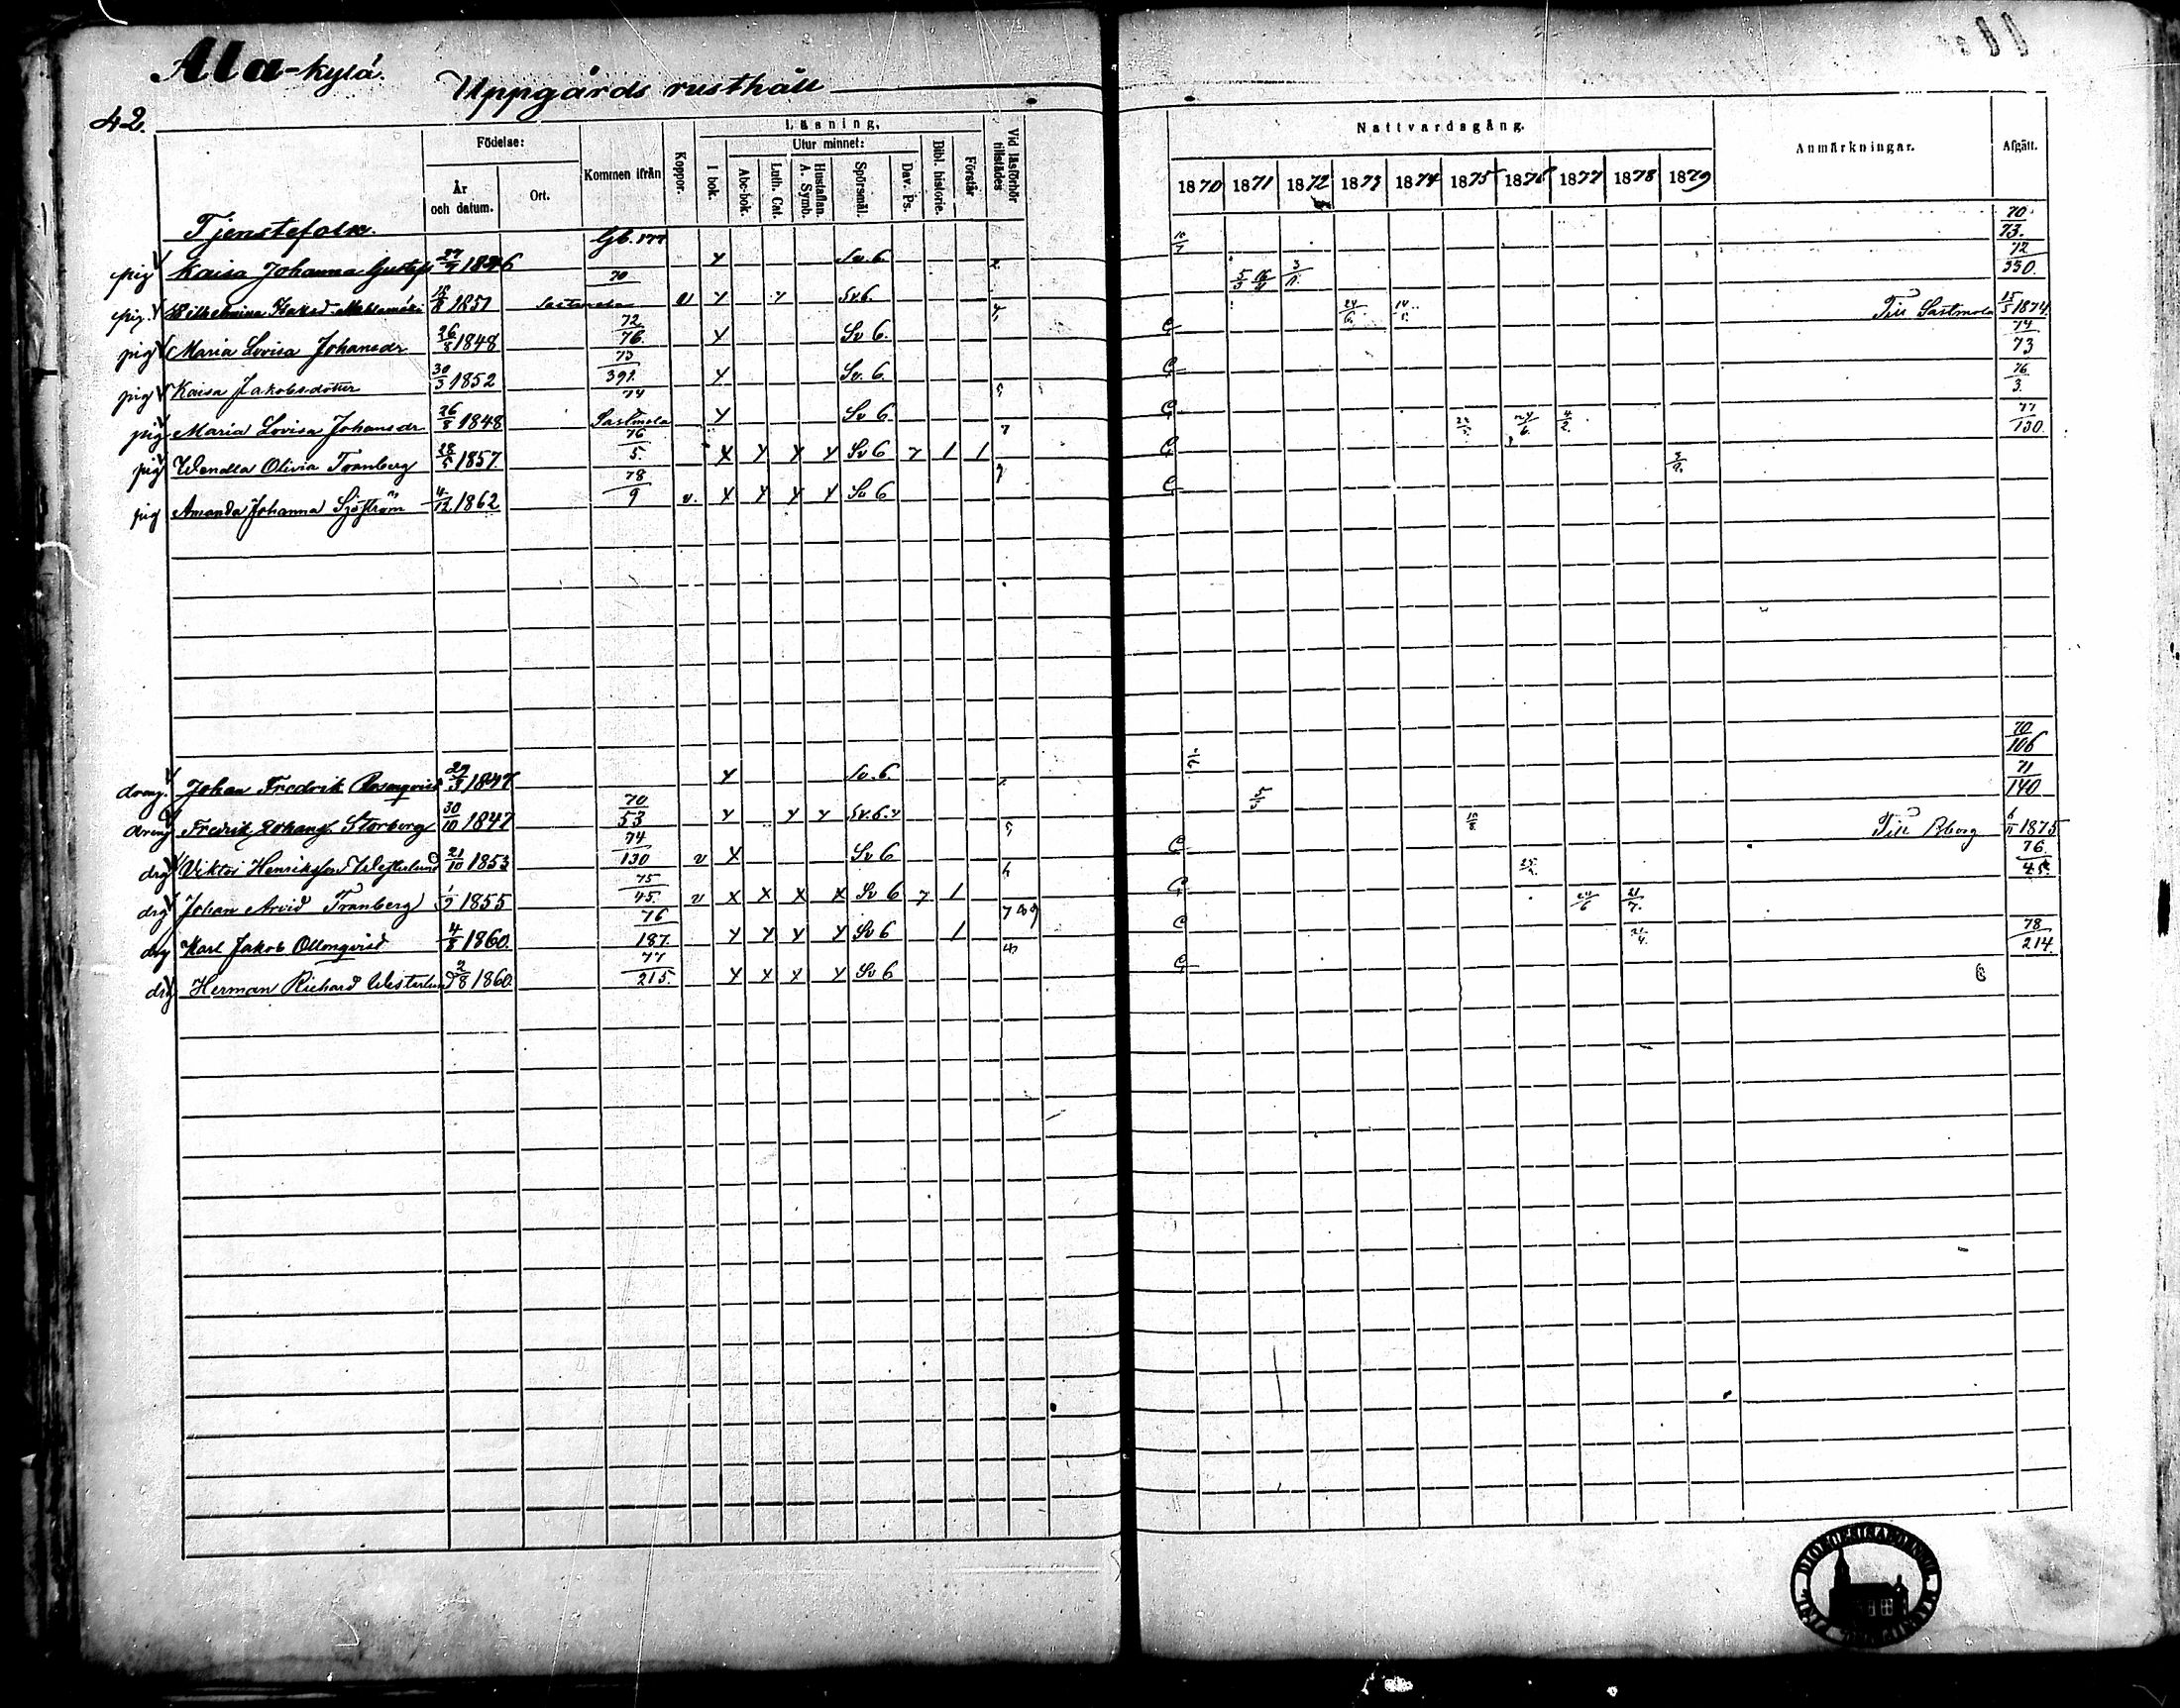 Ala-kylä.
Uppgårds rusthåll
42.
Födelse: Kommen ifrån Koppor. Läsning. Vid läsförhör tillstädes
År och datum. Ort. I bok. Utur minnet: Bibl. historie. Förstår
Abc-bok. Luth. Cat. Hustaflan. A. Symb. Spörsmål. Dav. Ps.
Nattvardsgång. Anmärkningar. Afgått.
1870 1871 1872 1873 1874 1875 1876 1877 1878 1879
Tjenstefolk. Gb. 177 70/73.
pig Kaisa Johanna Gustafs 27/7 1846 Y Sv. 6 12/330.
pig. Wilhelmina 18/8 1851 70 v Y Y Sv. 6. Till Sastmola 15/5 1874
pig Maria Lovisa Johansdr 26/8 1848 72/76. Y Sv 6. G 74/73
pig Kaisa Jakobsdotter 30/3 1852 73/391. Y Sv. 6. G 76/3
pig Maria Lovisa Johansdr 26/8 1848 74 Sastmola Y Sv 6 7 G 24/6. 4/2. 77/130.
pig Wendla Olivia Tranberg 28/5 1857. 76/5. X Y Y Y Sv 6 7 1 1 G
pig Amanda Johanna Sjöström 4/12 1862 78/9 v. X Y Y Y Sv 6 G
70/106
dreng. Johan Fredrik Rosenqvist 29/3 1847 Y Sv. 6 71/140
dreng Fredrik Johans. Storberg 30/10 1847 70/53 Y Y Y Sv. 6. Till Åborg 6/11 1875
drg Viktor Henriksson Westerlund 21/10 1853 74/130 v X Sv 6 G 76/45.
drg Johan Arvid Tranberg 1/7 1855 75/45. v X X X X Sv 6 7 1 G 24/6 21/7.
drg Karl Jakob Ollonqvist 4/8 1860. 76/187. Y Y Y Y Sv 6 1 G 78/214.
drg Herman Richard Westerlund 2/8 1860. 77/215. Y X X Y Sv 6 G